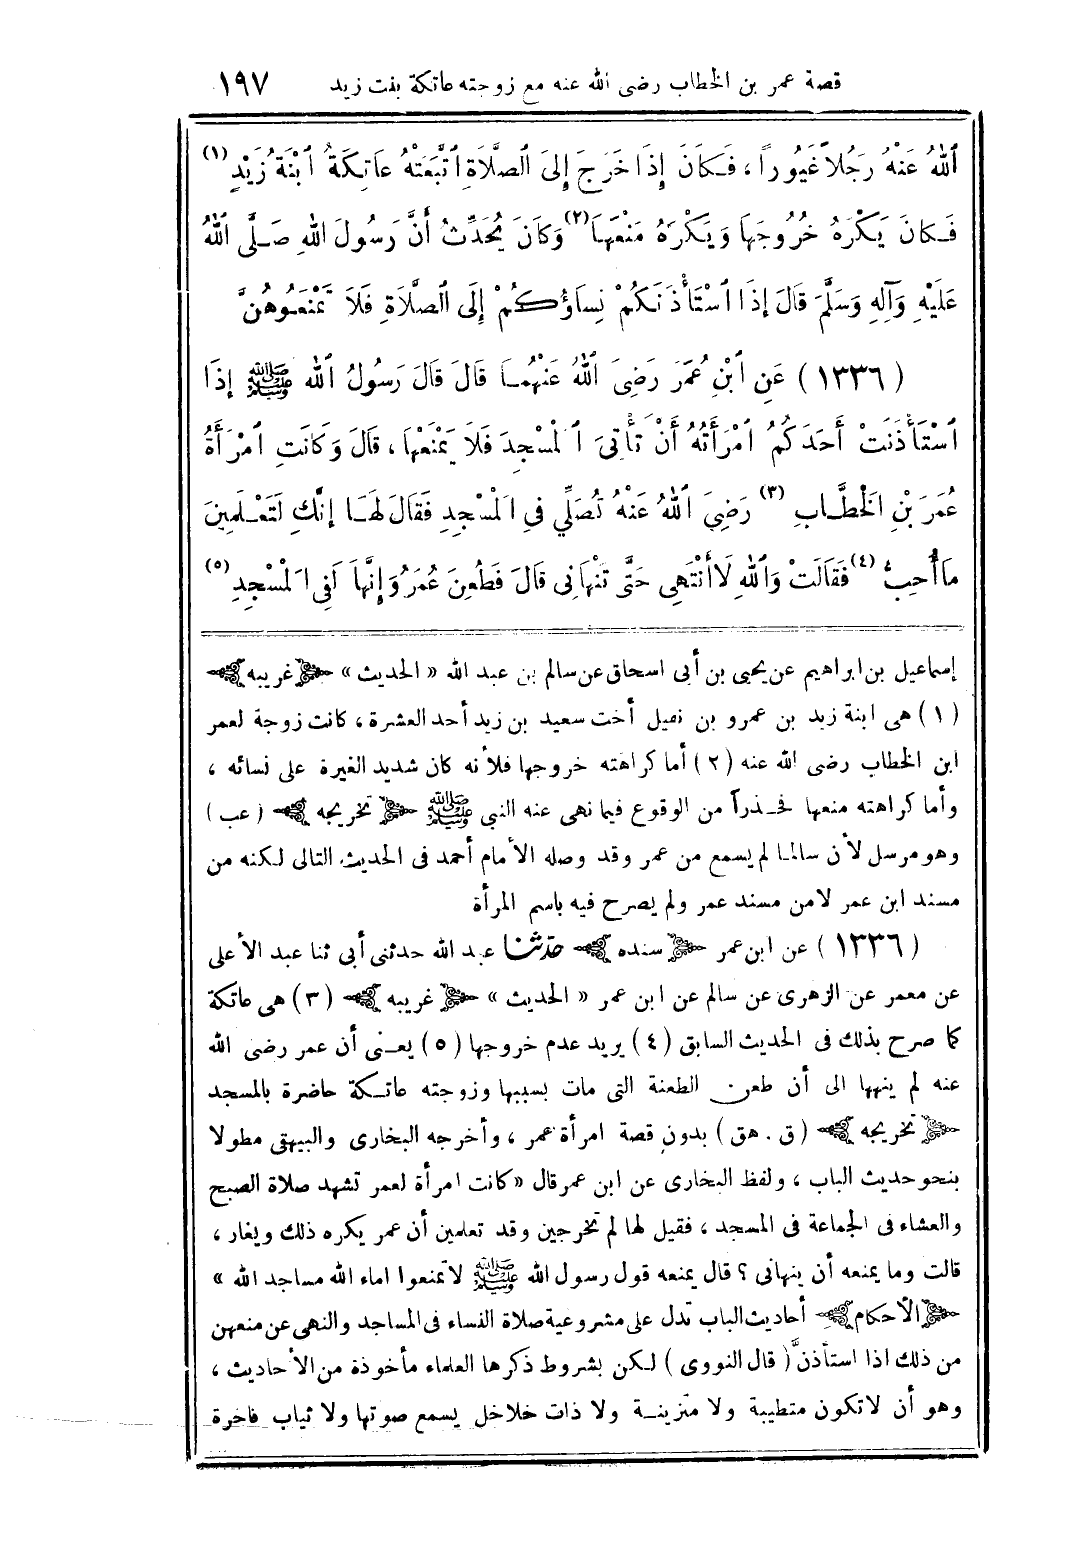 قصة عمر بن الخطاب رضى الله عنه مع زوجته عاتكة بنت زيد ١٩٧
اَللهُ عَنْهُ رَجُلاً غَيُوراً ، فَكَانَ إِذَا خَرَجَ إِلىَ الصَّلَاةِ اُتَّبَعَتْهُ عَاتِكَةُ اُبْنَةُ زَيْدٍ (١)
فَكَانَ يَكْرَهُ خُرُوجَهَا وَيَكْرَهُ مَنْعَهَا (٢) وَكَانَ يُحَدِّثُ أَنَّ رَسُولَ اللهِ صَلَّى اللهُ
عَلَيْهِ وَآلِهِ وَسَلَّمَ قَالَ إِذَا اُسْتَأْذَنَكُمْ نِسَاؤُكُمْ إِلَى الصَّلَاةِ فَلَا تَمْنَعُوهُنَّ
( ١٣٣٦ ) عَنِ اُبْنِ عُمَرَ رَضِىَ اللهُ عَنْهُمَا قَالَ قَالَ رَسُولُ اللهِ ﷺ إِذَا
اُسْتَأْذَنَتْ أَحَدَكُمُ اُمْرَأَتُهُ أَنْ تَأْتِىَ الْمَسْجِدَ فَلاَ يَمْنَعْهَا ، قَالَ وَكَانَتِ اُمْرَأَةُ
عُمَرَ بْنِ الْخَطَّابِ (٣) رَضِىَ اللهُ عَنْهُ تُصَلِّي فىِ الْمَسْجِدِ فَقَالَ لَهَا إِنَّكِ لَتَعْلَمِينَ
مَا أُحِبُّ (٤) فَقَالَتْ وَاللهِ لَا أَنْتَهِى حَتَّى تَنْهَانِى قَالَ فَطُعِنَ عُمَرُ وَإِنَّهَا لَفِى الْمَسْجِدِ (٥)
إسماعيل بن ابراهيم عن يحيى بن أبى اسحاق عن سالم بن عبد الله « الحديث » ﴿غريبه﴾
( ١ ) هى ابنة زيد بن عمرو بن نفيل أخت سعيد بن زيد أحد العشرة ، كانت زوجة لعمر
ابن الخطاب رضى الله عنه ( ٢ ) أما كراهته خروجها فلأنه كان شديد الغيرة على نسائه ،
وأما كراهته منعها فحذراً من الوقوع فيما نهى عنه النبى ﷺ ﴿تخريجه﴾ ( عب )
وهو مرسل لأن سالما لم يسمع من عمر وقد وصله الأمام أحمد فى الحديث التالى لكنه من
مسند ابن عمر لا من مسند عمر ولم يصرح فيه باسم المرأة
( ١٣٣٦ ) عن ابن عمر ﴿سنده﴾ حدّثنا عبد الله حدثنى أبى ثنا عبد الأعلى
عن معمر عن الزهرى عن سالم عن ابن عمر « الحديث » ﴿غريبه﴾ ( ٣ ) هى عاتكة
كما صرح بذلك فى الحديث السابق ( ٤ ) يريد عدم خروجها ( ٥ ) يعنى أن عمر رضى الله
عنه لم ينهها الى أن طعن الطعنة التى مات بسببها وزوجته عاتكة حاضرة بالمسجد
﴿تخريجه﴾ ( ق . هق ) بدون قصة امرأة عمر ، وأخرجه البخارى والبيهقى مطولا
بنحو حديث الباب ، ولفظ البخارى عن ابن عمر قال « كانت امرأة لعمر تشهد صلاة الصبح
والعشاء فى الجماعة فى المسجد ، فقيل لها لم تخرجين وقد تعلمين أن عمر يكره ذلك ويغار ،
قالت وما يمنعه أن ينهانى ؟ قال يمنعه قول رسول الله ﷺ لا تمنعوا اماء الله مساجد الله »
﴿الأحكام﴾ أحاديث الباب تدل على مشروعية صلاة النساء فى المساجد والنهى عن منعهن
من ذلك اذا استأذنَّ ( قال النووى ) لكن بشروط ذكرها العلماء مأخوذة من الأحاديث ،
وهو أن لا تكون متطيبة ولا متزينة ولا ذات خلاخل يسمع صوتها ولا ثياب فاخرة